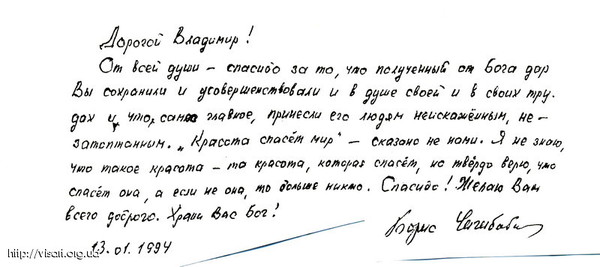 Дорогой Владимир!
От всей души – спасибо за то, что полученный от Бога дар
Вы сохранили и усовершенствовали и в душе своей и в своих тру-
дах и, что самое главное, принесли его людям неискажённым, не-
затоптанным. „Красота спасёт мир" – сказано не нами. Я не знаю,
что такое красота – та красота, которая спасёт, но твёрдо верю, что
спасёт она, а если не она, то больше никто. Спасибо! Желаю Вам
всего доброго. Храни Вас Бог!
Борис Чичибабин
13.01.1994
http://visari.org.ua